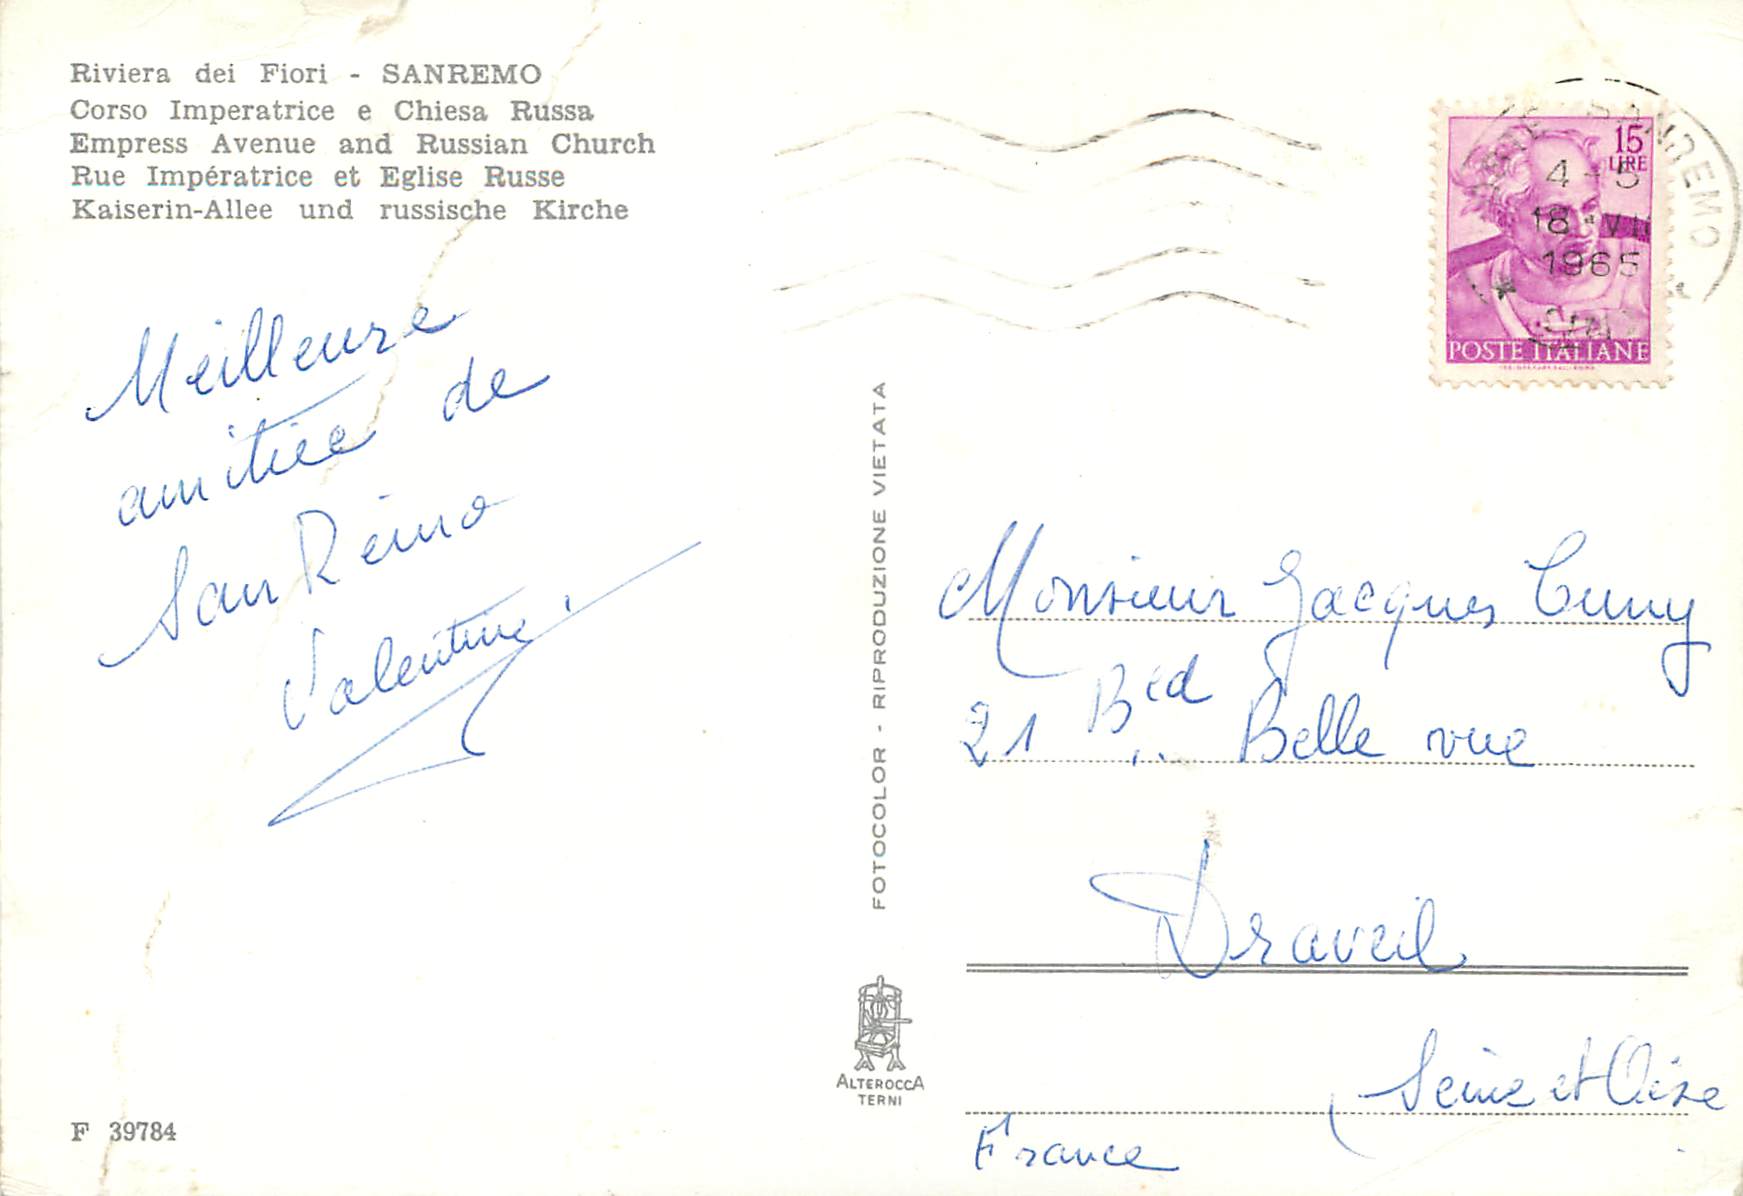 Riviera dei Fiori - SANREMO
Corso Imperatrice e Chiesa Russa
Empress Avenue and Russian Church
Rue Impératrice et Eglise Russe
Kaiserin-Allee und russische Kirche
Meilleure
amitiée de
San Remo
Valentine
F 39784
FOTOCOLOR - RIPRODUZIONE VIETATA
ALTEROCCA
TERNI
15
LIRE
POSTE ITALIANE
SANREMO
4-5
18·VII
1965
Monsieur Jacques Cuny
21 Bed Belle vue
Draveil
Seine et Oise
France